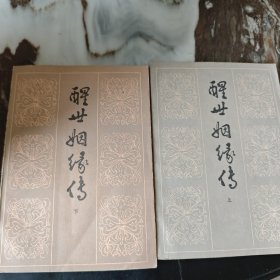 醒世姻缘传
下
醒世姻缘传
上